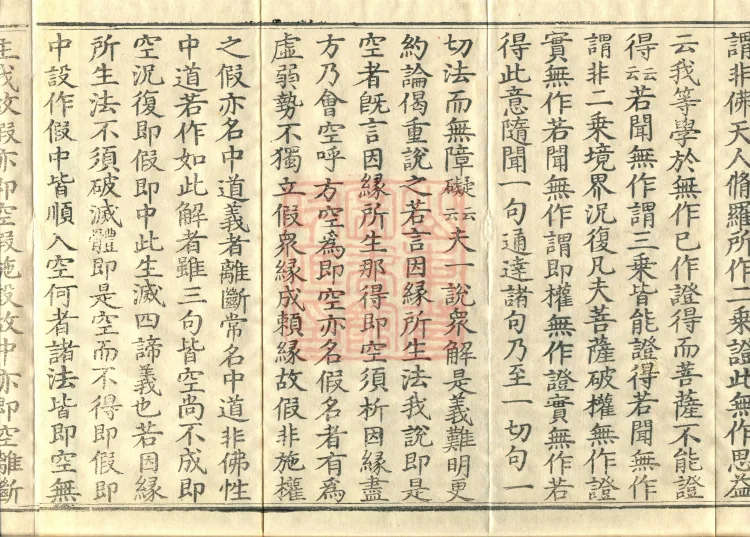 謂非佛天人脩羅所作二乗證此無作思益
云我等學於無作已作證得而菩薩不能證
得云云若聞無作謂三乗皆能證得若聞無作
謂非二乗境界況復凡夫菩薩破權無作證
實無作若聞無作謂即權無作證實無作若
得此意隨聞一句通達諸句乃至一切句一
切法而無障礙云云夫一說衆解是義難明更
約論偈重說之若言因緣所生法我說即是
空者旣言因緣所生那得即空須析因緣盡
方乃會空呼方空為即空亦名假名者有為
虚弱勢不獨立假衆緣成頼緣故假非施權
之假亦名中道義者離斷常名中道非佛性
中道若作如此解者雖三句皆空尚不成即
空況復即假即中此生滅四諦義也若因緣
所生法不須破滅體即是空而不得即假即
中設作假中皆順入空何者諸法皆即空無
主我故假亦即空假施設故中亦即空離斷